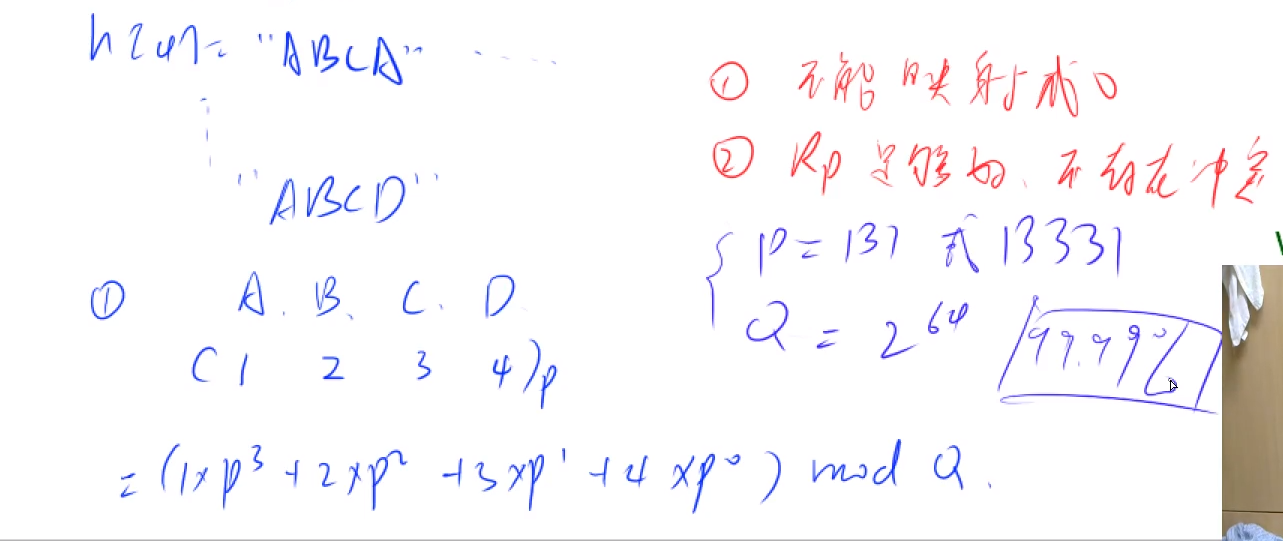 h[4] = "ABCA" ......
"ABCD"
① A. B. C. D.
(1 2 3 4)p
= (1×p³ + 2×p² + 3×p¹ + 4×p⁰) mod Q.
① 不能映射成0
② Rp足够好、不存在冲突
{ P = 131 或 13331
Q = 2⁶⁴ 99.99%